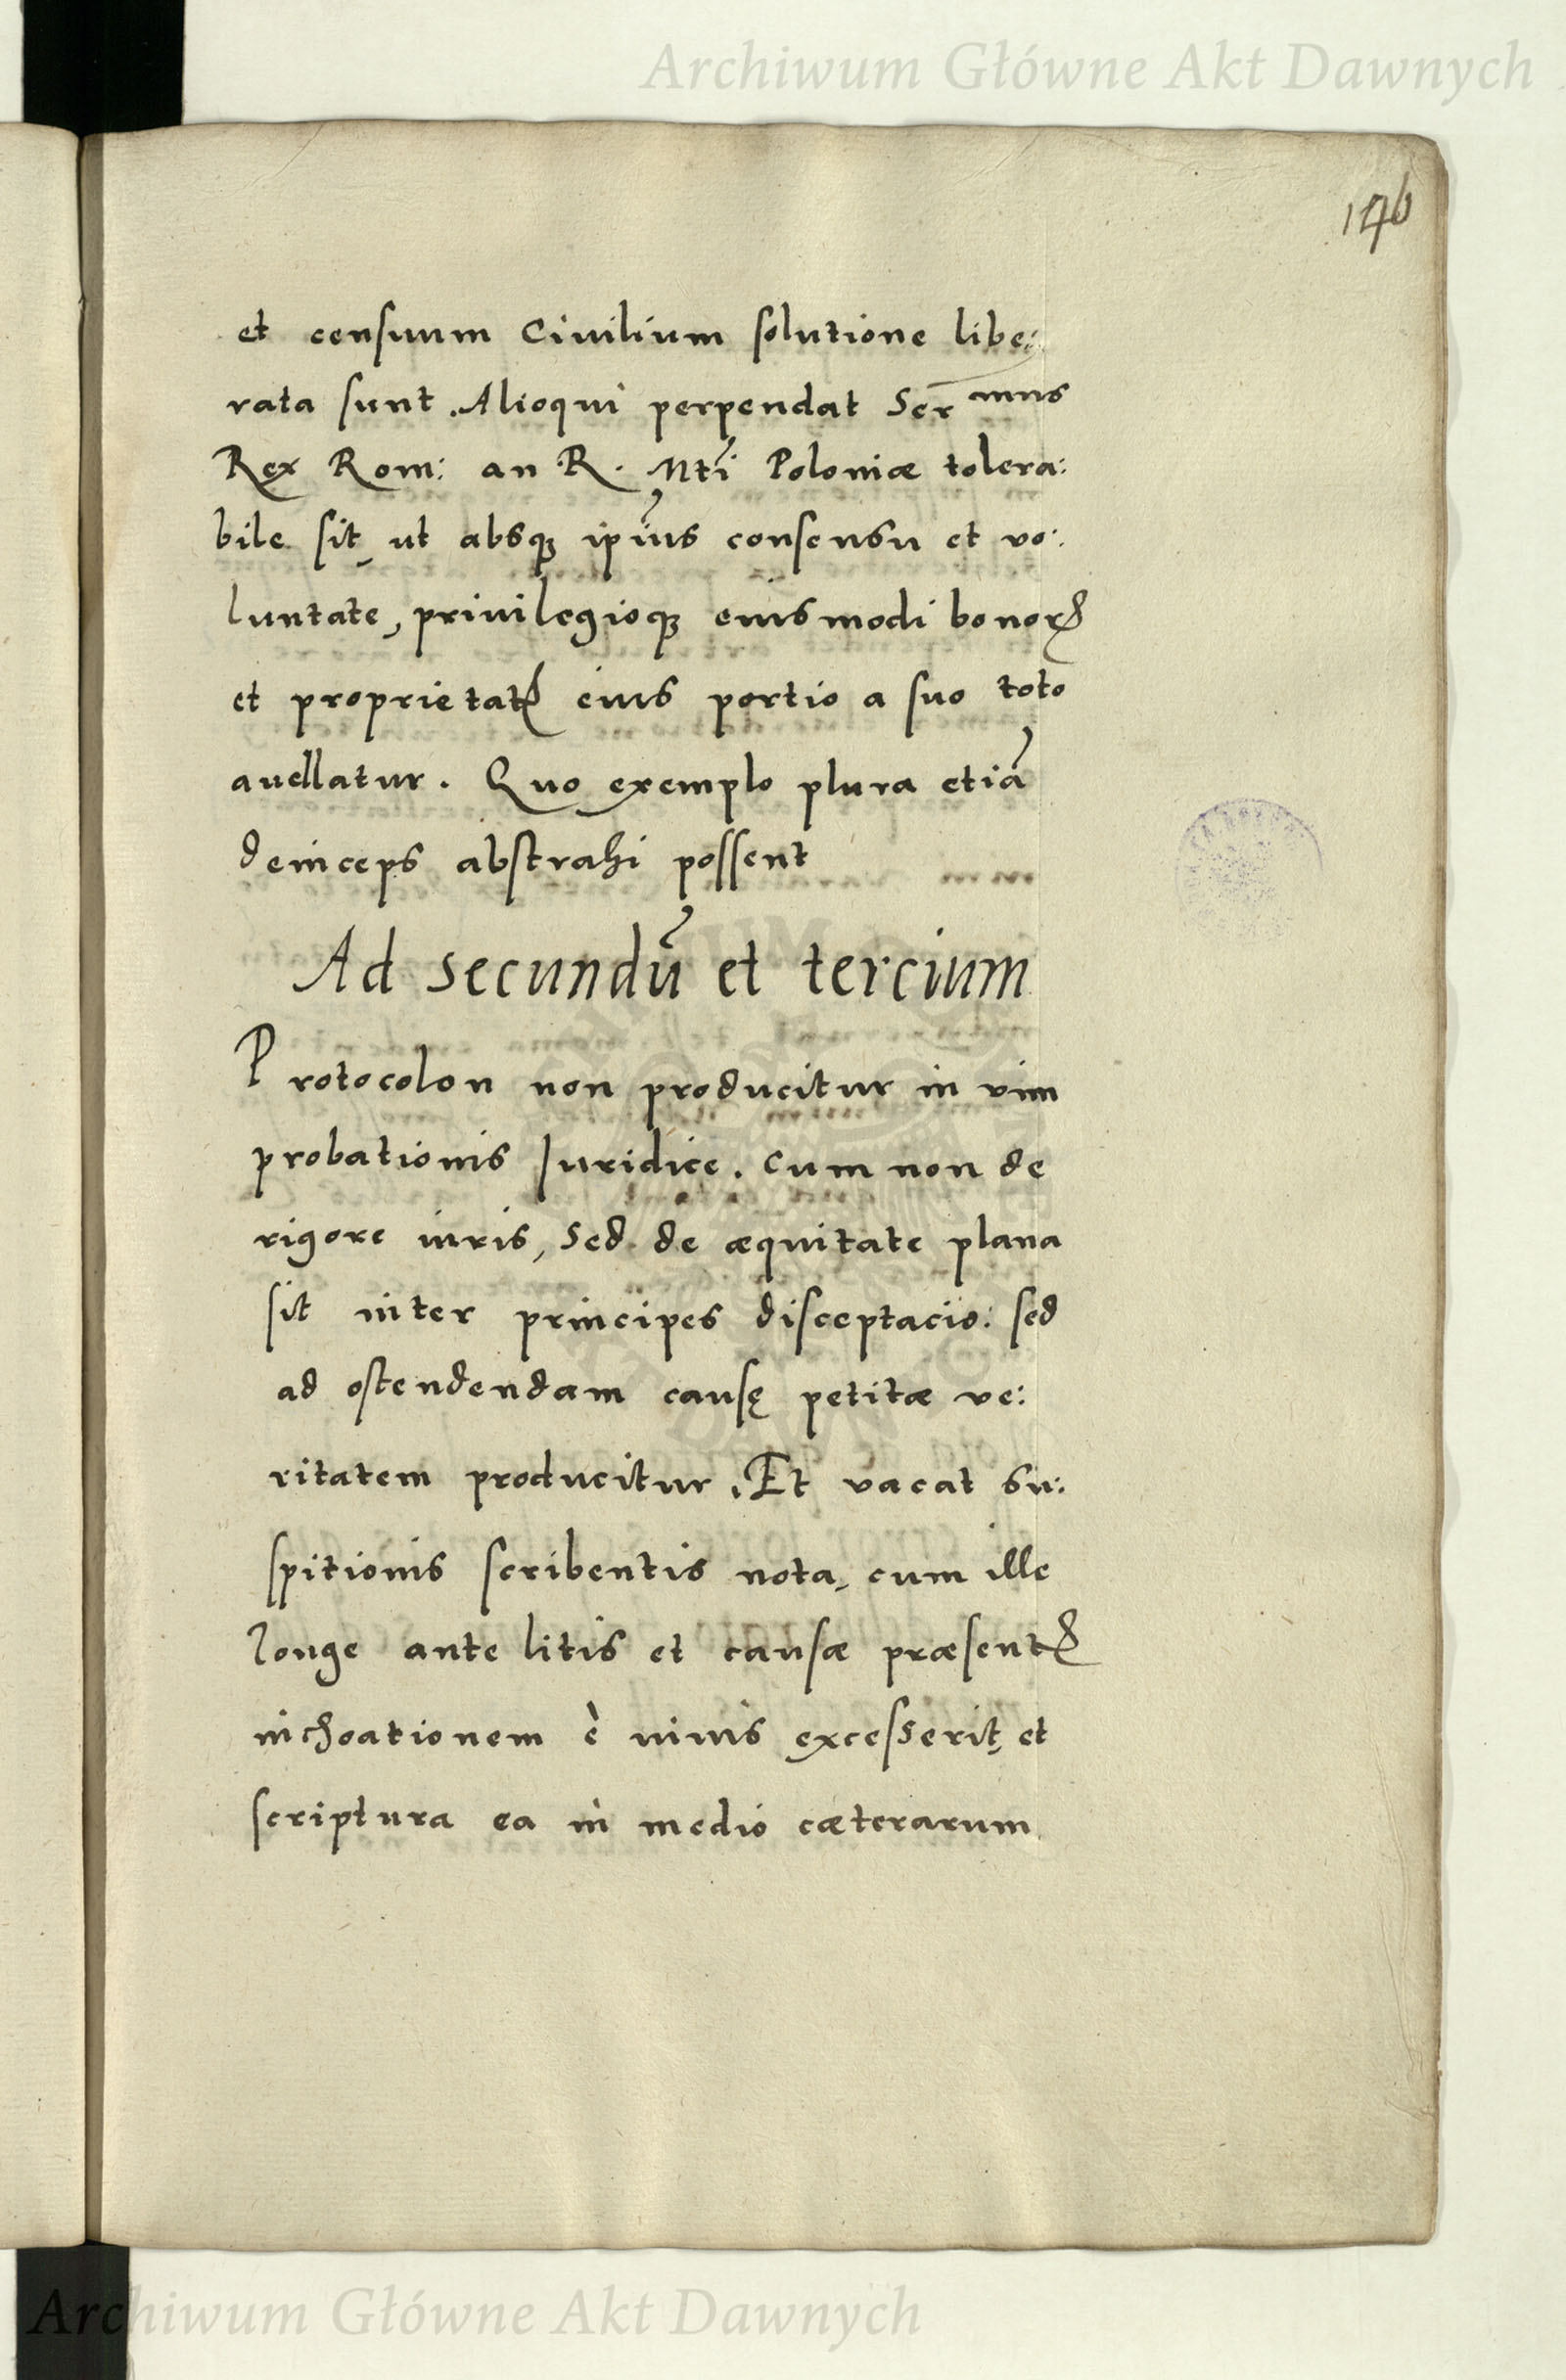 Archiwum Główne Akt Dawnych
146
et censuum Ciuilium solutione libe:
rata sunt. Alioqui perpendat Ser̄mus
Rex Rom: an R. Mti Poloniæ tolera:
bile sit, ut absqꝫ ipius consensu et vo:
luntate, priuilegioqꝫ eiusmodi bonorꝭ
et proprietatꝭ eius portio a suo toto
auellatur. Quo exemplo plura etiā
deinceps abstrahi possent
Ad secundū et tercium
Protocolon non producitur in vim
probationis Juridice. Cum non de
rigore iuris, sed de æquitate plana
sit inter principes disceptacio: sed
ad ostendendam causę petitæ ve:
ritatem producitur. Et vacat su:
spitionis scribentis nota, cum ille
longe ante litis et causæ præsentꝭ
inchoationem è uiuis excesserit, et
scriptura ea in medio cæterarum
Archiwum Główne Akt Dawnych